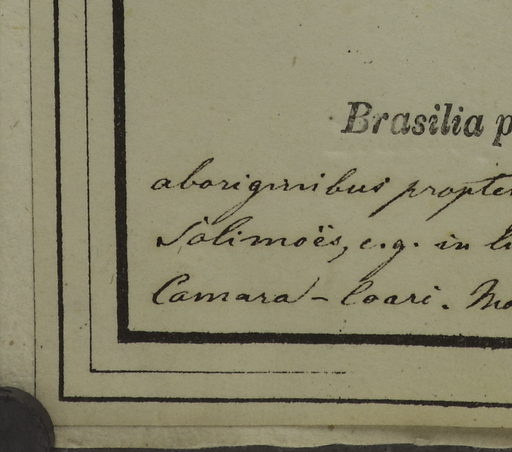 Brasilia p
aboriginibus propter
Solimoës, e.g. in li
Camara-Coari. Mo